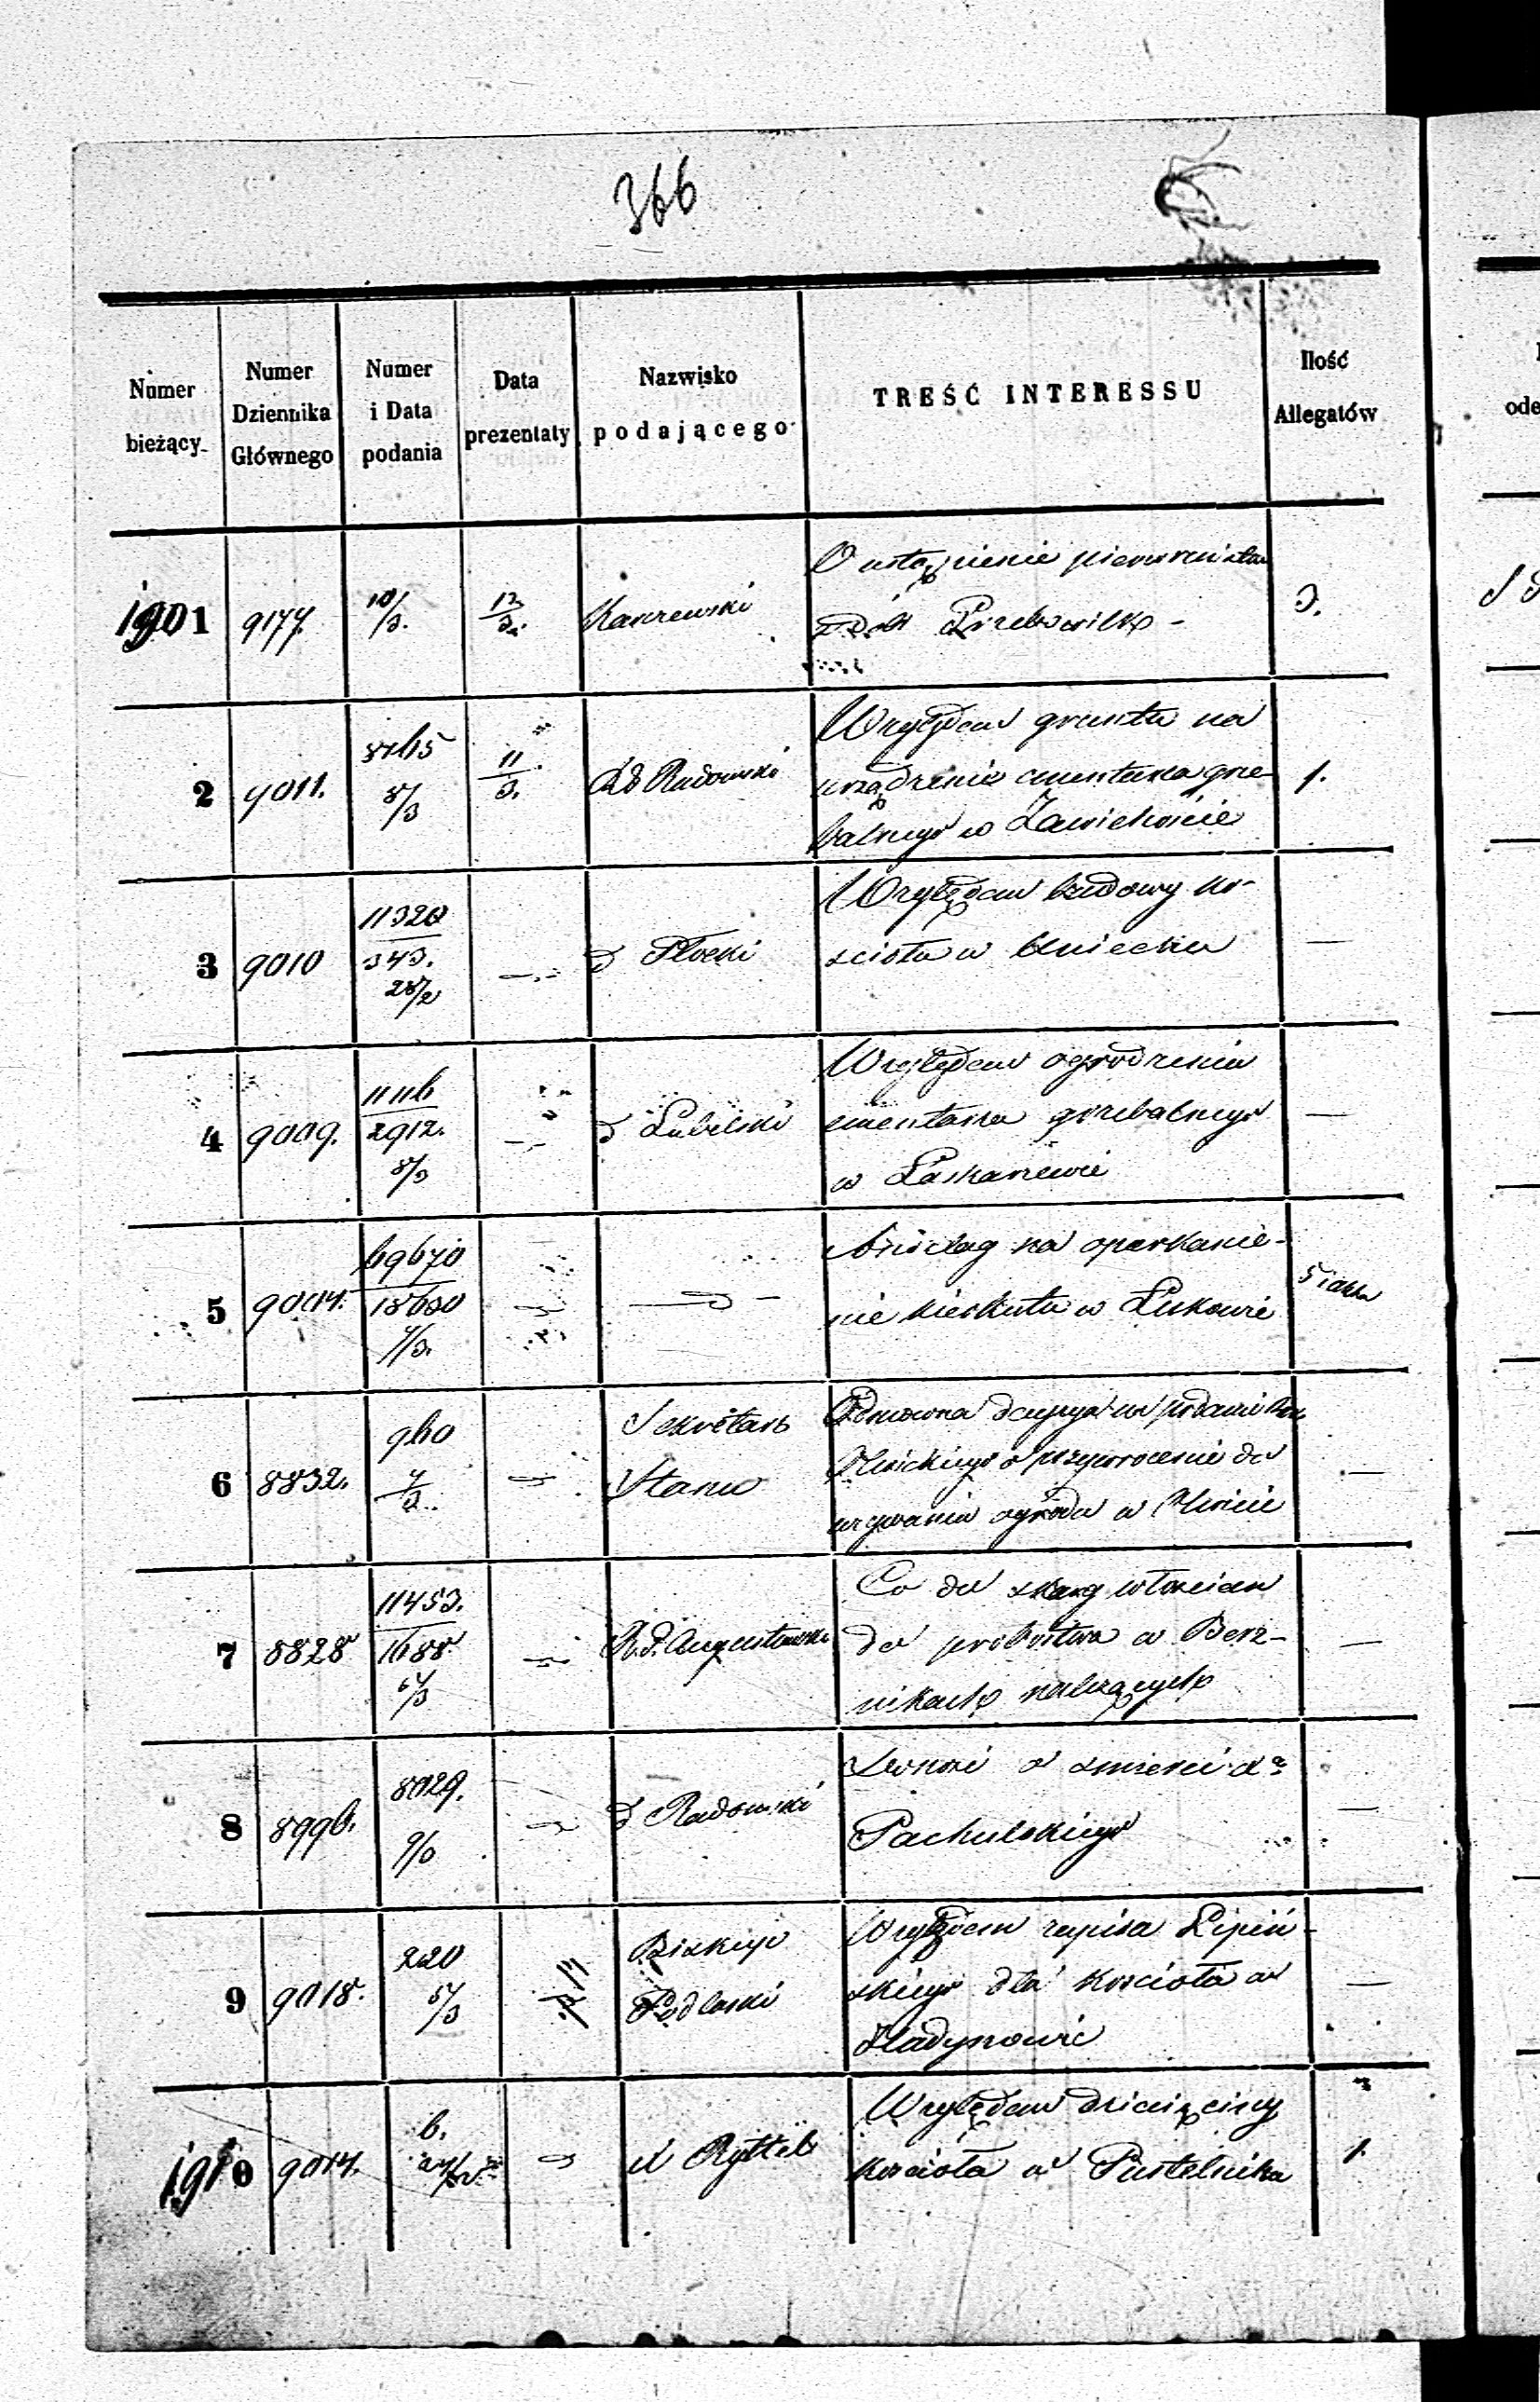 366
Numer bieżący
Numer Dziennika Głównego
Numer i Data podania
Data prezentaty
Nazwisko podającego
TREŚĆ INTERESSU
Ilość Allegatów
1901 9177. 10/3. 12/3. Karczewski
O ustąpienie pierwszeństwa
dóbr
3.
2 9011. 8765 8/3 11/3. Rd Radomski
Względem gruntu na
urządzenie cmentarza grze-
balnego w Zawichoście
1.
3 9010 11320 343. 28/2 — d Płocki
Względem budowy ko-
ścioła w Uniecku
—
4 9009. 11116 2912. 8/3 — d Lubelski
Względem ogrodzenia
cmentarza grzebalnego
w Łaskarzewie
—
5 9004. 69670 18680 7/3. — d —
Anszlag na oparkanie-
nie kierkutu w Łukowie
6 8832. 960 7/3. —
Sekretarz
Stanu
Odmowna decyzya na podanie
o przywrócenie do
używania ogrodu w
—
7 8828 11453. 1688. 6/3 — R. G. Augustowski
Co do skarg włościan
do probostwa w Berż-
nikach należących
—
8 8996. 8029. 9/3 — d Radomski
Donosi o śmierci Xa
Pachulskiego
—
9 9018. 220 8/3
Biskup
Podlaski
Względem zapisu Lipiń-
skiego dla kościoła w
Hadynowie
—
1910 9014. 6. — X Ryttel
Względem dziesięciny
kościoła w Pustelniku
1.